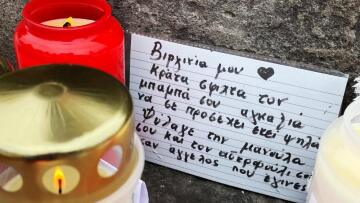 Βιρχινια μου ♥
Κρατα σφιχτα τον
μπαμπα σου αγκαλια
να σε προσεχει εκει ψηλα
Φυλαξε την μανουλα
σου και τον αδερφουλι σου
σαν αγγελος που εγινες